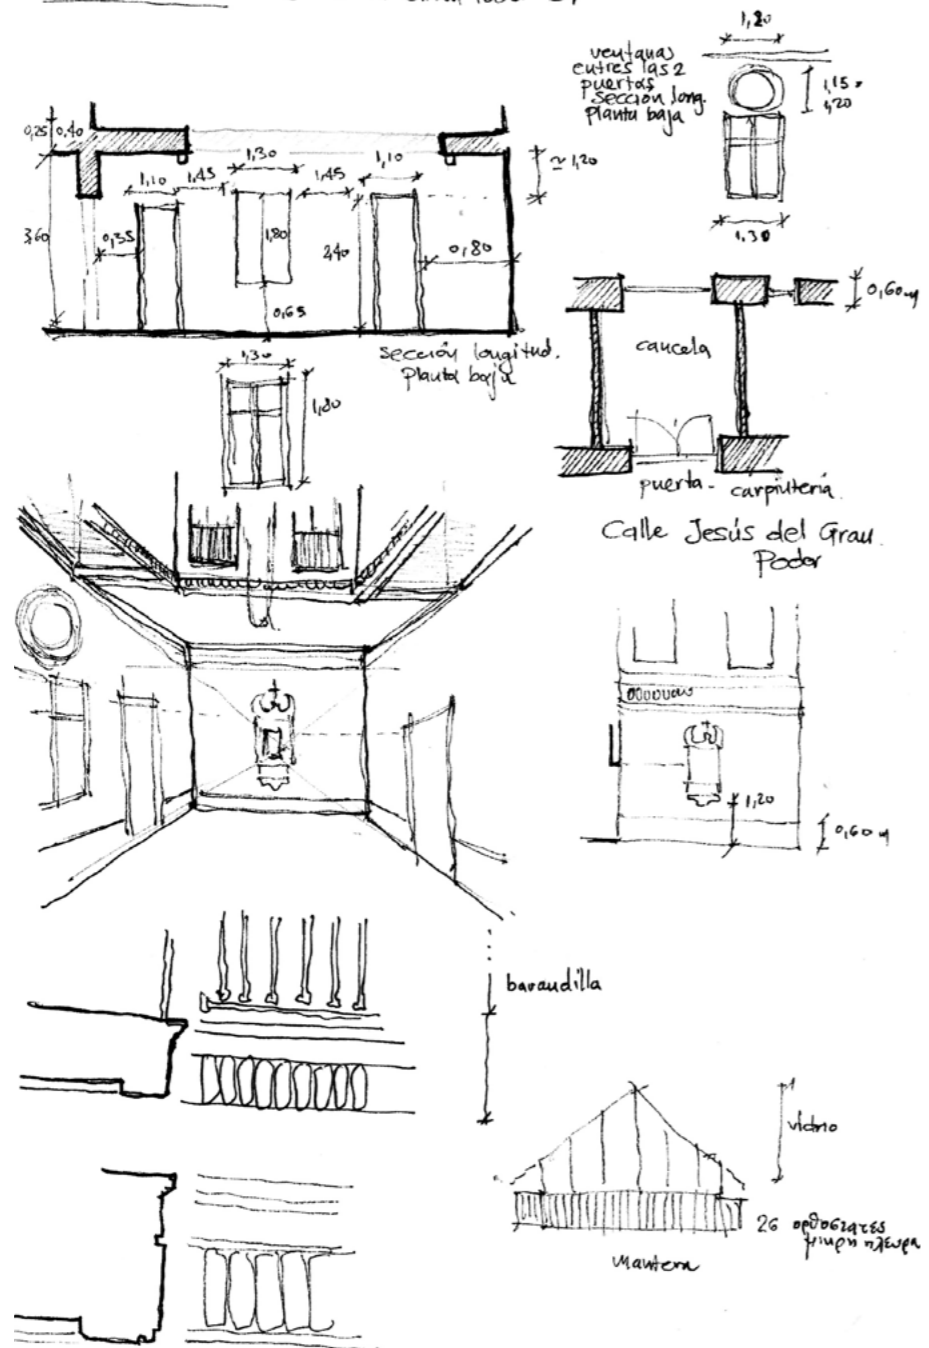 1,20
ventanas
entres las 2
puertas
sección long.
Planta baja
1,15 -
1,20
1.30
0,25 0,40
1,30
1,10
≃ 1,20
1,10
1,45
1,45
3,60
0,35
1,80
2,40
0,80
0,65
sección longitud.
Planta baja
1,30
1,80
0,60 m
cancela
puerta - carpintería.
Calle Jesús del Gran
Poder
1,20
0,60 m
barandilla
vidrio
26 ορθοστατες
μικρη πλευρα
Montera